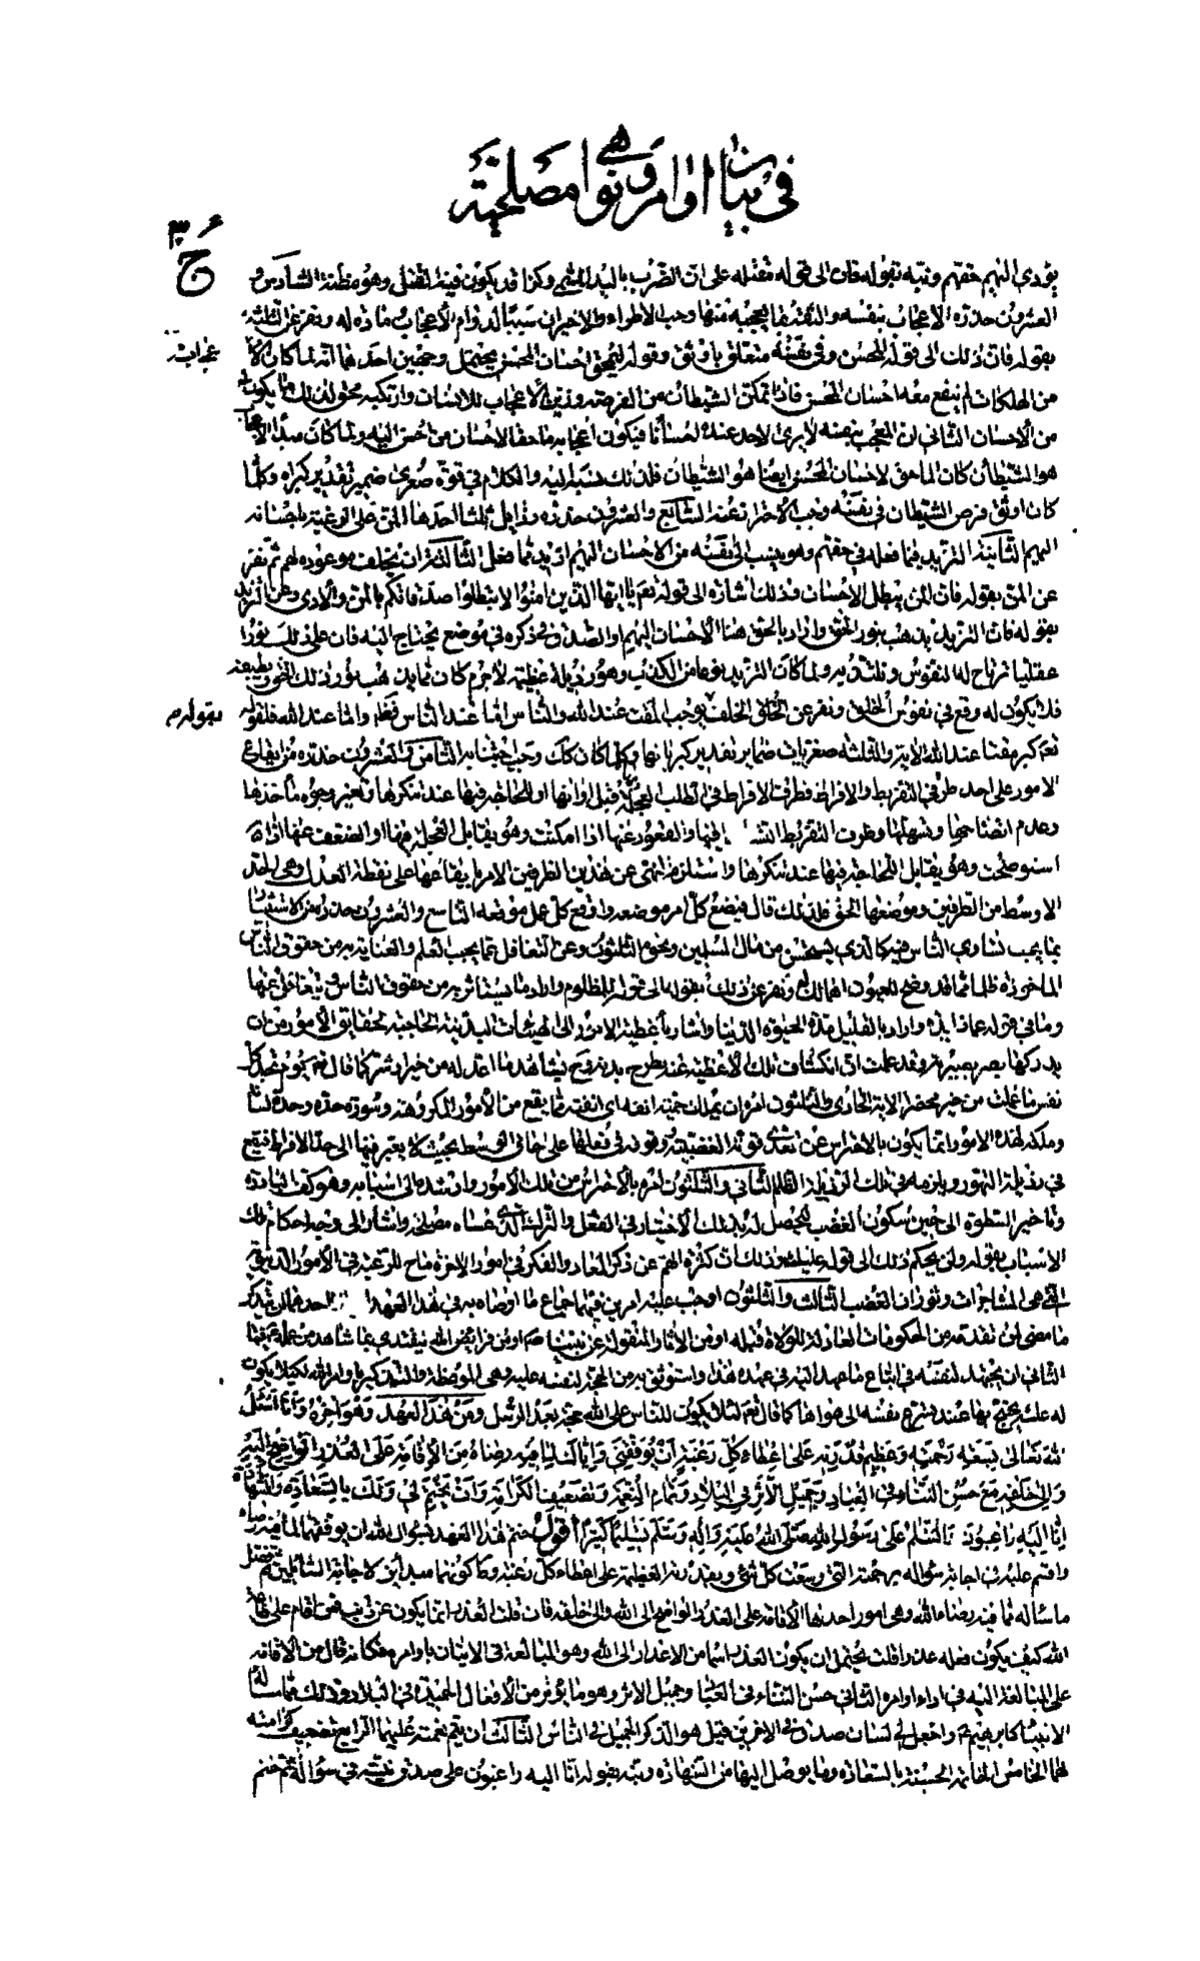 في بيان اوامر ونواهي مصلحية
ج ٣
يؤدي اليهم حقهم ونبه بقوله فان الى قوله مقتله على ان الضرب باليد اللكم وكزا قد يكون فيه القتل وهو مظنة له السادس و
العشرون حذره الاعجاب بنفسه والثقة بما يعجبه منها وحب الاطراء والاخيران سببان لدوام الاعجاب مادة له ونفر عن الثلثة
بقوله فان ذلك الى قوله المحسن وفي نفسه متعلق باوثق وقوله ليمحق احسان المحسن يحتمل وجهين احدهما انه لما كان الا
عجاب
من الهلكات لم ينفع معه احسان المحسن فاذا تمكن الشيطان من الفرصة وزين الاعجاب للانسان وارتكبه محق لذلك ما يكون له
من الاحسان الثاني ان المعجب بنفسه لا يرى لاحد عنده احسانا فيكون اعجابه ماحقا لاحسان من احسن اليه ولما كان مبدأ الاعجاب
هو الشيطان كان الماحق لاحسان المحسن ايضا هو الشيطان فلذلك نسبه اليه والكلام في قوة صغرى ضمير تقدير كبراه وكلما
كان اوثق فرص الشيطان في نفسه وجب الاحتراز عنه السابع والعشرون حذره رذايل ثلثا احدها المن على الرعية باحسانه
اليهم الثانية التزيد فيما فعله في حقهم وهو ينسب الى نفسه من الاحسان اليهم ازيد مما فعل الثالثة ان يخلف موعوده لهم ثم نفر
عن المن بقوله فان المن يبطل الاحسان وذلك اشارة الى قوله تعالى يا ايها الذين امنوا لا تبطلوا صدقاتكم بالمن والاذى وعن التزيد
بقوله فان التزيد يذهب بنور الحق واراد بالحق هنا الاحسان اليهم او الصدق في ذكره في موضع يحتاج اليه فان على ذلك نورا
عقليا ترتاح له النفوس وتلتذ به ولما كان التزيد نوعا من الكذب وهو رذيلة عظيمة لا جرم كان مما يذهب نور ذلك الحق ويطفيه
فلا يكون له وقع في نفوس الخلق ونفر عن الخلق الخلف بوجب المقت عند الله والناس اما عند الناس فظ واما عند الله فلقوله
بقوله
تعالى كبر مقتا عند الله الاية والثلثه صغريات ضماير تقدير كبرياتها وكلما كان كك وجب اجتنابه الثامن والعشرون حذره من ايقاع
الامور على احد طرفي التفريط والافراط فطرف الافراط في الطلب العجلة فيه قبل اوانها او اللجاجة فيها عند تنكرها وتغير وجوه مأخذها
وعدم اتضاحها وتسهلها وطرف التفريط فيها والقعود عنها اذا امكنت وهو يقابل العجلة فيها او الضعف عنها اذا
استوضحت وهو يقابل اللجاجة فيها عند تنكرها واستلزم النهي عن هذين الطرفين الامر بايقاعها على نقطة العدل وهي الحد
الاوسط من الطرفين وموضعها الحق فلذلك قال فضع كل امر موضعه واوقع كل عمل موقعه التاسع والعشرون حذره من الاستيثار
بما يجب تساوي الناس فيه كالذي يستحسن من مال المسلمين ونحوه الثلثون وعن التغافل عما يجب العلم والعناية به من حقوق الناس
الماخوذة ظلما مما قد وضح للعيون اهمالك له ونفر عن ذلك بقوله الى قوله للمظلوم واراد ما يستأثر به من حقوق الناس ويتغافل عنها
وما في قوله عما زايدة واراد بالقليل مدة الحيوة الدنيا واشار باغطية الامور الى الهيئات البدنية الحاجبة لحقايق الامور من ان
يدركها بصر بصيرته وقد علمت ان انكشاف تلك الاغطية عند طرح بدنه فح يشاهد ما اعد له من خير او شر كما قال تعالى يوم تجد كل
نفس ما عملت من خير محضرا الاية الحادي والثلثون امره ان يملك حمية انفه اي انفته مما يقع من الامور المكروهة وسورة حده وحدة لسانه
وملكه لهذه الامور انما يكون بالاحتراس عن تعدي قوته الغضبية ووقوفه في فعلها على حاق الوسط بحيث لا يعبر فيها الى حد الافراط فيقع
في رذيلة التهور ويلزمه في تلك الرذيلة الظلم الثاني والثلثون امره بالاحتراس من تلك الامور وارشده الى اسبابه وهو كف البادرة
وتاخير السطوة الى حين سكون الغضب ليحصل له بذلك الاختيار في الفعل والترك الذي عساه مصلحة واشار الى وجه احكام تلك
الاسباب بقوله ولن يحكم ذلك الى قوله عليك وذلك ان كثرة الهم عن ذكر المعاد والفكر في امور الاخرة ماح للرغبة في الامور الدنيوية
التي هي المشاجرات وثوران الغضب الثالث والثلثون اوجب عليه امرين فيهما جماع ما اوصاه به في هذا العهد احدهما ان يتذكر
ما مضى لمن تقدمه من الحكومات العادلة للولاة قبله او من الاثار المنقولة عن نبينا او من فرايض الله فيقتدي بما شاهد من عمله فيها
الثاني ان يجتهد لنفسه في اتباع ما عهد اليه في عهده هذا واستوثق به من الحجة لنفسه عليه وهي الموعظة والتذكير باوامر الله لكيلا يكون
له عليه يحتج بها عند تسرع نفسه الى هواها كما قال تعالى لئلا يكون للناس على الله حجة بعد الرسل ومن هذا العهد وهو اخره وانا اسئل
الله تعالى بسعة رحمته وعظيم قدرته على اعطاء كل رغبة ان يوفقني واياك لما فيه رضاه من الاقامة على العذر الواضح اليه
والى خلقه مع حسن الثناء في العباد وجميل الاثر في البلاد وتمام النعمة وتضعيف الكرامة وان يختم لي ولك بالسعادة والشهادة
انا اليه راغبون والسلام على رسول الله صلى الله عليه واله وسلم تسليما كثيرا اقول ختم هذا العهد بسؤال الله ان يوفقهما لما فيه رضاه
واقسم عليه في اجابة سؤاله برحمته التي وسعت كل شئ وبقدرته العظيمة على اعطاء كل رغبة وما كونهما مبدأين لاجابة السائلين ثم فصل
ما سأله مما فيه رضاء الله وهي امور احدها الاقامة على العذر الواضح الى الله والى خلقه فان قلت العذر انما يكون عن ذنب فمن اقام على طاعة
الله كيف يكون فعله عذرا قلت يحتمل ان يكون العذر اسما من الاعذار الى الله وهو المبالغة في الاتيان باوامره فكانه قال من الاقامة
على المبالغة اليه في اداء اوامره الثاني حسن الثناء في العباد وجميل الاثر وهو ما يؤثر من الافعال الجميلة في البلاد وذلك مما سأله
الانبياء كابرهيم ع واجعل لي لسان صدق في الاخرين قيل هو الذكر الجميل في الناس الثالث ان يتم نعمته عليهما الرابع تضعيف كرامته
لهما الخامس الخاتمة الحسنة بالسعادة وما يوصل اليها من الشهادة ونبه بقوله انا اليه راغبون على صدق نيته في سؤاله ثم ختم